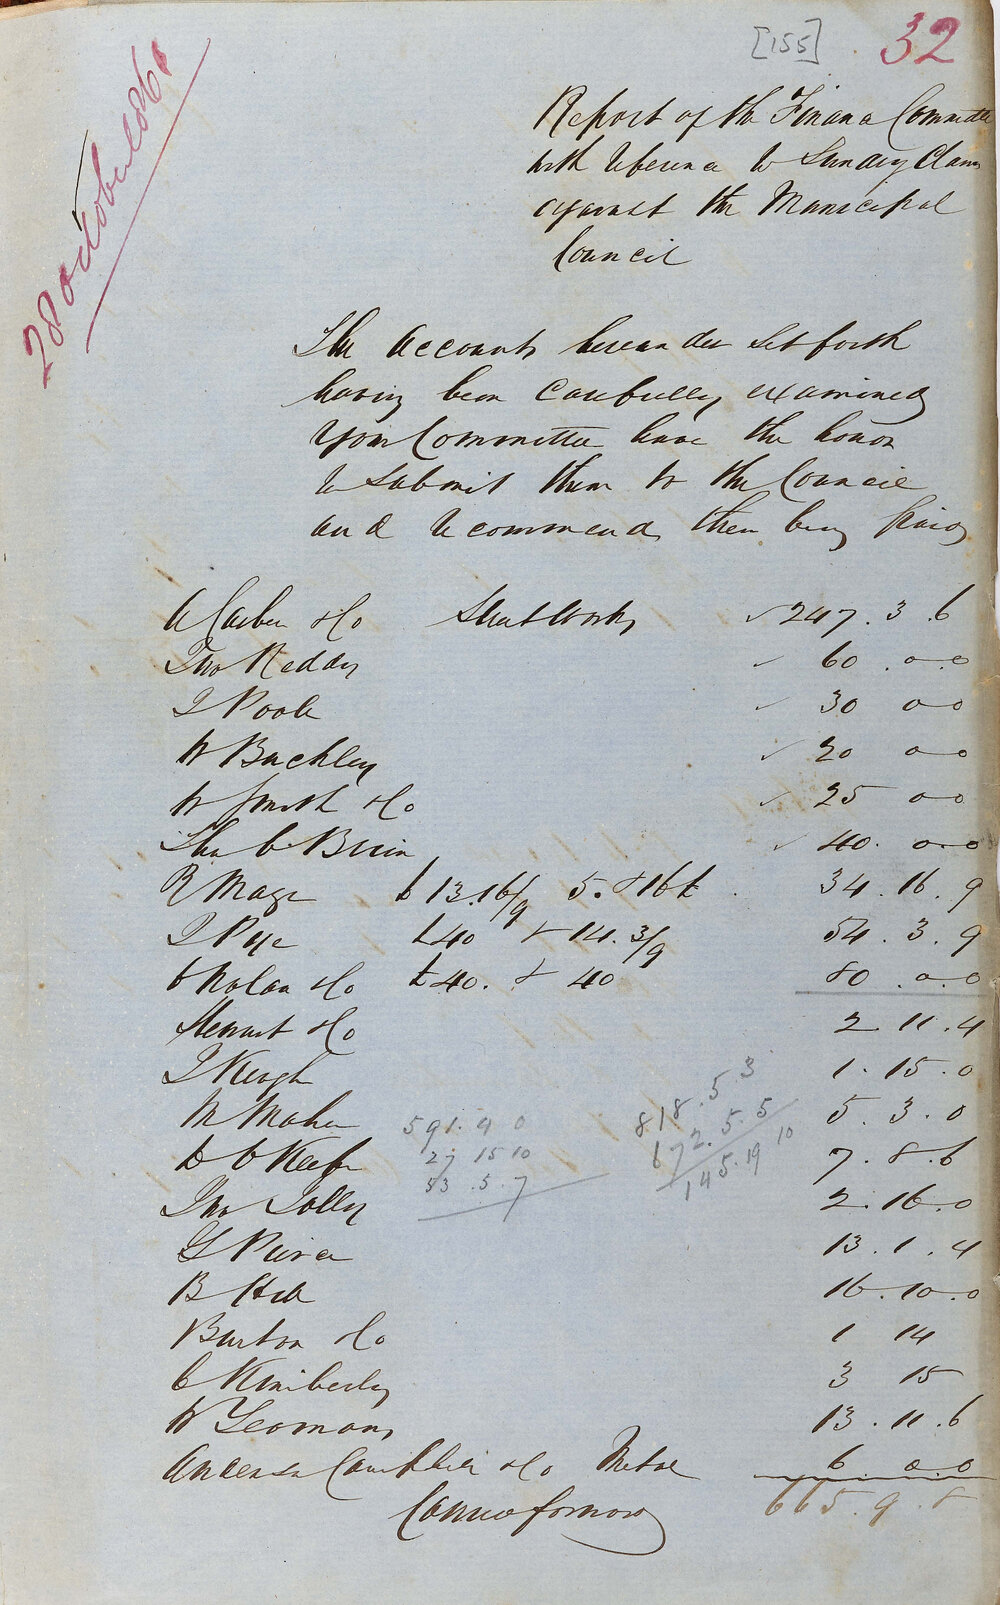 [155] 32
28 October 1861
Report of the Finance Committee
with reference to Sundry Claims
against the Municipal
Council
The Accounts hereunder set forth
having been carefully examined
Your Committee have the honor
to submit them to the Council
and recommend them being paid
& Co Street Works 247 . 3 . 6
Thos Reddy 60 . 0 . 0
J Poole 30 0 0
W Buckley 20 0 0
W Smith & Co 25 0 0
40 . 0 . 0
R Mage £13.16/9 5. & 16 34 . 16 . 9
J Pye £40 & 14. 3/9 54 . 3 . 9
Nolan & Co £40. & 40 80 . 0 . 0
Stewart & Co 2 . 11 . 4
J Keogh 1 . 15 . 0
M Maher 5 . 3 . 0
D O Keefe 7 . 8 . 6
Jno Jolly 2 . 16 . 0
G Pierce 13 . 1 . 4
B Hill 16 . 10 . 0
Burton & Co 1 14
C Kimberley 3 15
W Yeomans 13 . 11 . 6
Campbell & Co Metal 6 0 0
Carried forward 665 . 9 . 8
591 . 4 0
27 15 10
53 . 5 . 7
818 . 5 3
672 . 5 . 5
145 . 19 10